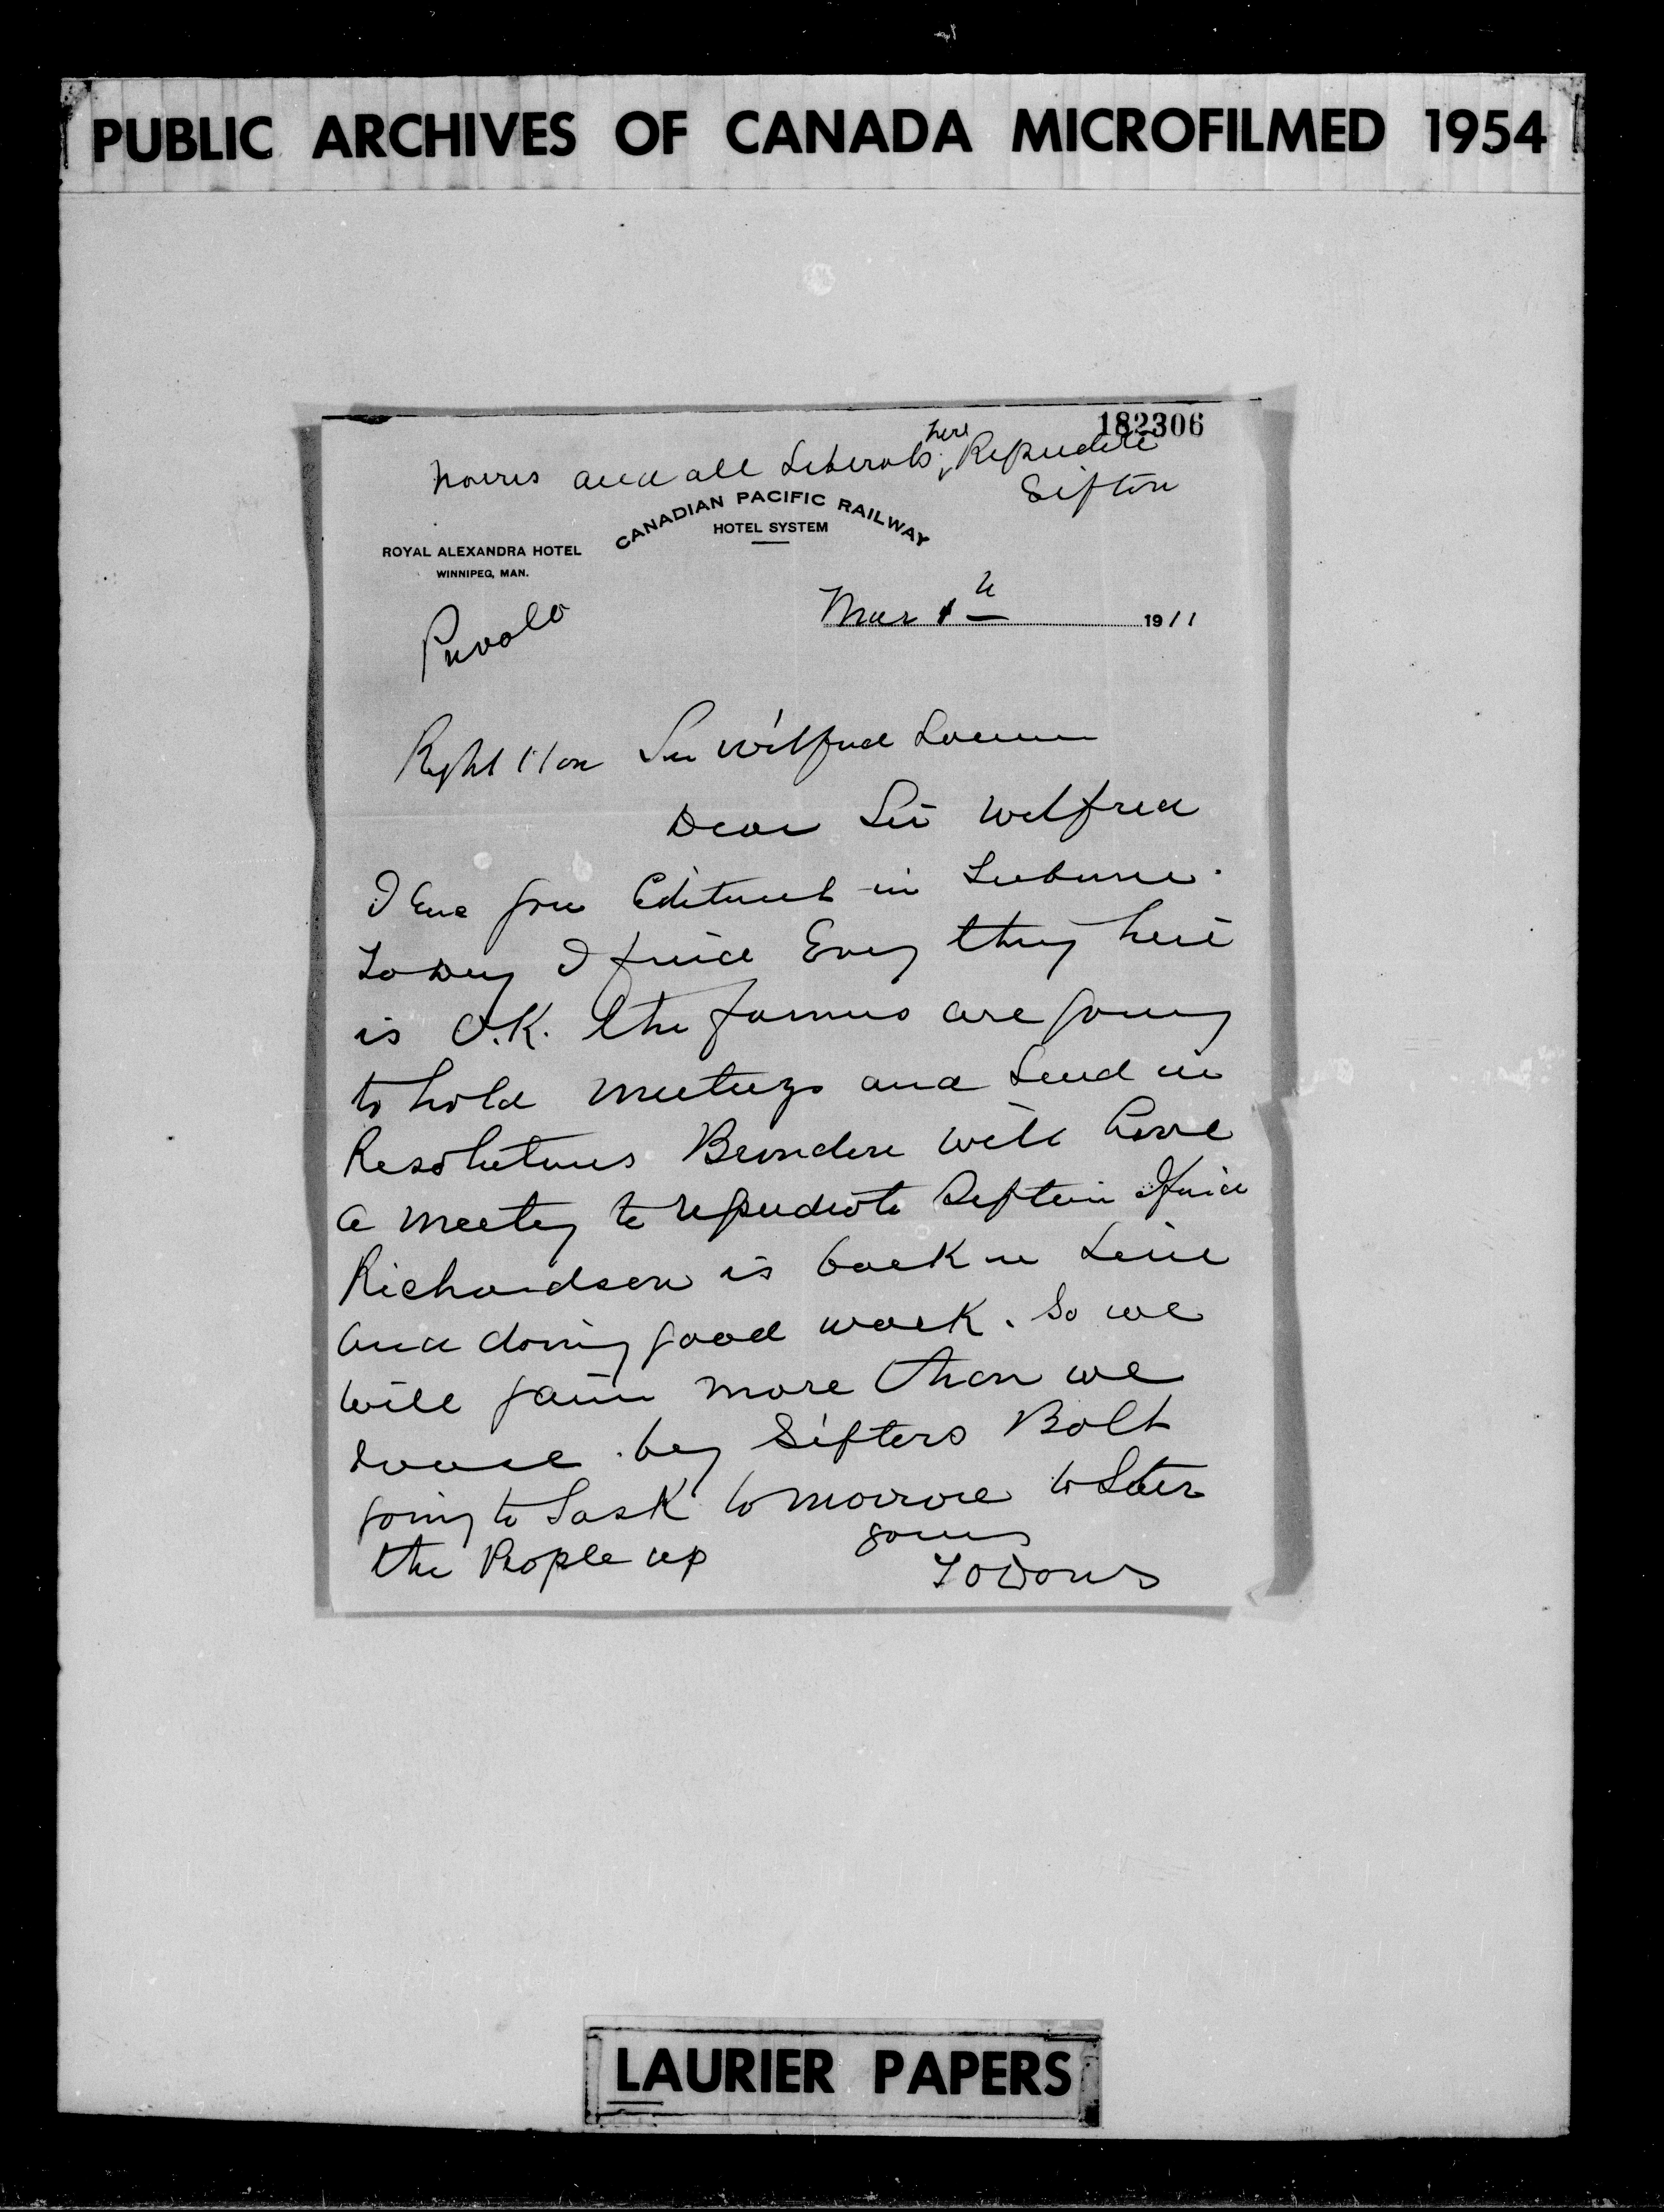 PUBLIC ARCHIVES OF CANADA MICROFILMED 1954
182306
Norris and all Liberals here Repudiate
Sifton
CANADIAN PACIFIC RAILWAY
HOTEL SYSTEM
ROYAL ALEXANDRA HOTEL
WINNIPEG, MAN.
Mar 1911
Private
Right Hon Sir Wilfrid Laurier
Dear Sir Wilfred
I in Tribune
To Day I find Every thing here
is O.K. the farmers are going
to hold meetings and Send in
Resolutions Brandon will have
a meeting to repudiate Sifton I find
Richardson is back in Line
and doing good work. So we
will gain more than we
loose by Siftons Bolt
going to Sask tomorrow to Stir
the People up yours
LAURIER PAPERS